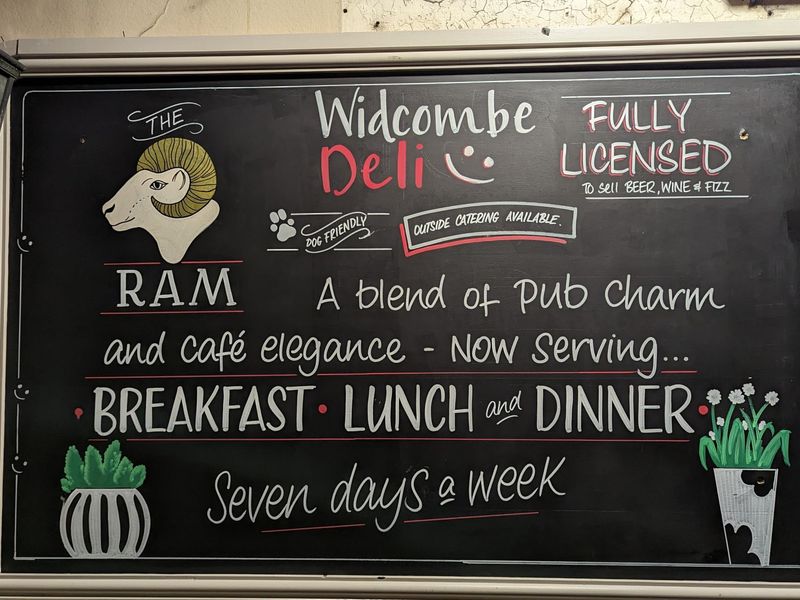 THE
RAM
Widcombe
Deli
FULLY
LICENSED
TO Sell BEER, WINE & FIZZ
DOG FRIENDLY
OUTSIDE CATERING AVAILABLE.
A blend of Pub Charm
and café elegance - NOW Serving...
• BREAKFAST • LUNCH and DINNER •
Seven days a week